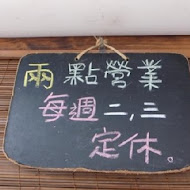 兩點營業
每週二,三
定休。